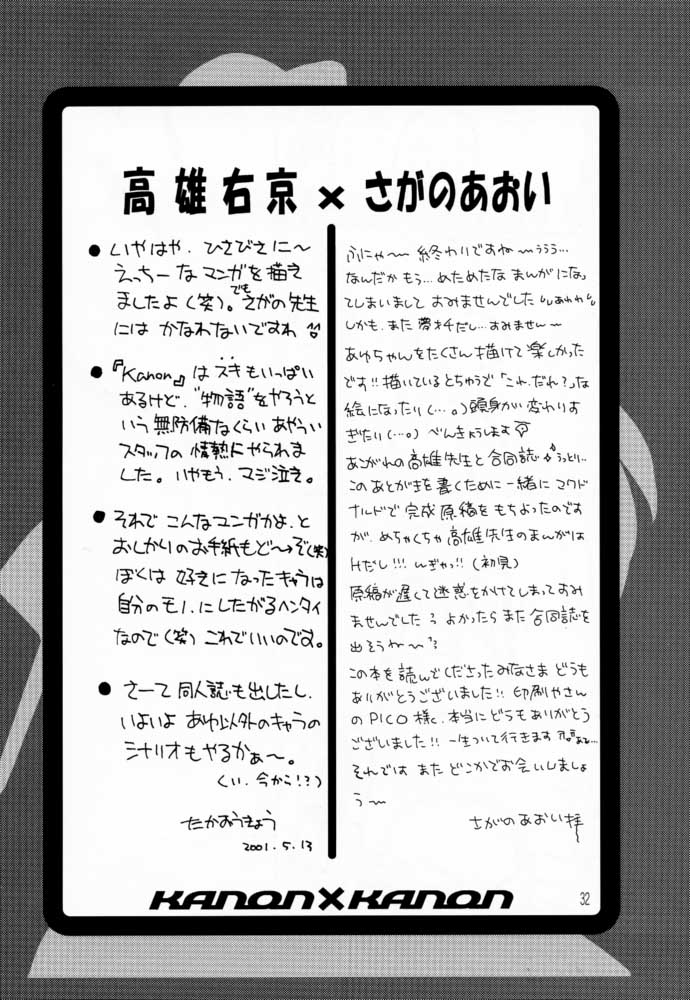 高雄右京×さがのあおい
● いやはや、ひさびさに〜
えっちーなマンガを描え
ましたよ(笑)。でもさがの先生
には かなわないですわ
● 『Kanon』はスキもいっぱい
あるけど、"物語"をやろうと
いう無防備なくらいあやうい
スタッフの情熱にやられま
した。いやもう、マジ泣き。
● それで こんなマンガかよ、と
おしかりのお手紙もど〜ぞ(笑)
ぼくは 好きになったキャラは
自分のモノ、にしたがるヘンタイ
なので(笑) これでいいのです。
● さーて 同人誌も出したし、
いよいよ あゆ以外のキャラの
シナリオもやるかぁ〜。
(い、今から!?)
たかおうきょう
2001.5.13
ふにゃ〜 終わりですね〜ううう…
なんだか もう…めためたな まんがにな
ってしまいまして すみませんでした "あわわ"
しかも、また 夢オチだし…すみません〜
あゆちゃんをたくさん描けて楽しかった
です!! 描いているとちゅうで「これ、だれ?」な
絵になったり(…。)頭身がい変わりす
ぎたり(…。) べんきょうします
あこがれの高雄先生と合同誌 うっとり…
このあとがきを書くために一緒にマクド
ナルドで完成原稿をもちよったのです
が、めちゃくちゃ高雄先生のまんがは
Hだし!!! んぎゃっ!! (初見)
原稿が遅くて迷惑をかけてしまってすみ
ませんでした よかったら また 合同誌を
出そうね〜
この本を読んでくださったみなさま どうも
ありがとうございました!! 印刷やさん
のPICO様、本当にどうもありがとう
ございました!! 一生ついて行きます
それでは また どこかでお会いしましょ
う〜
さがのあおい拝
KANON×KANON
32